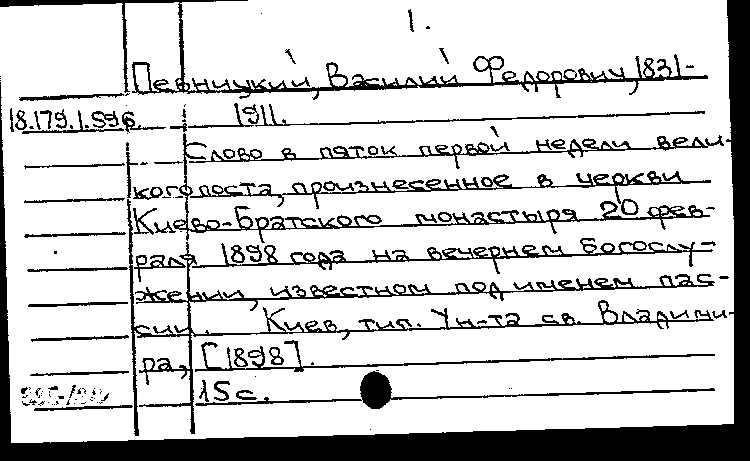 1.
Певницкий, Василий Федорович, 1831-
18.179.1.596. 1911.
Слово в пяток первой недели вели-
кого поста, произнесенное в церкви
Киево-Братского монастыря 20 фев-
раля 1898 года на вечернем богослу-
жении, известном под именем пас-
сии. Киев, тип. Ун-та св. Владими-
ра, [1898].
15 с.